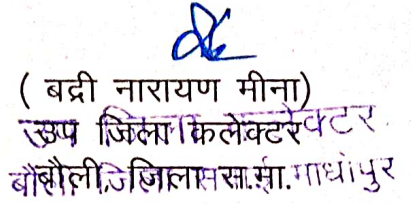 ( बद्री नारायण मीना)
उप जिला कलेक्टर
बौंली, जिला स.मा.